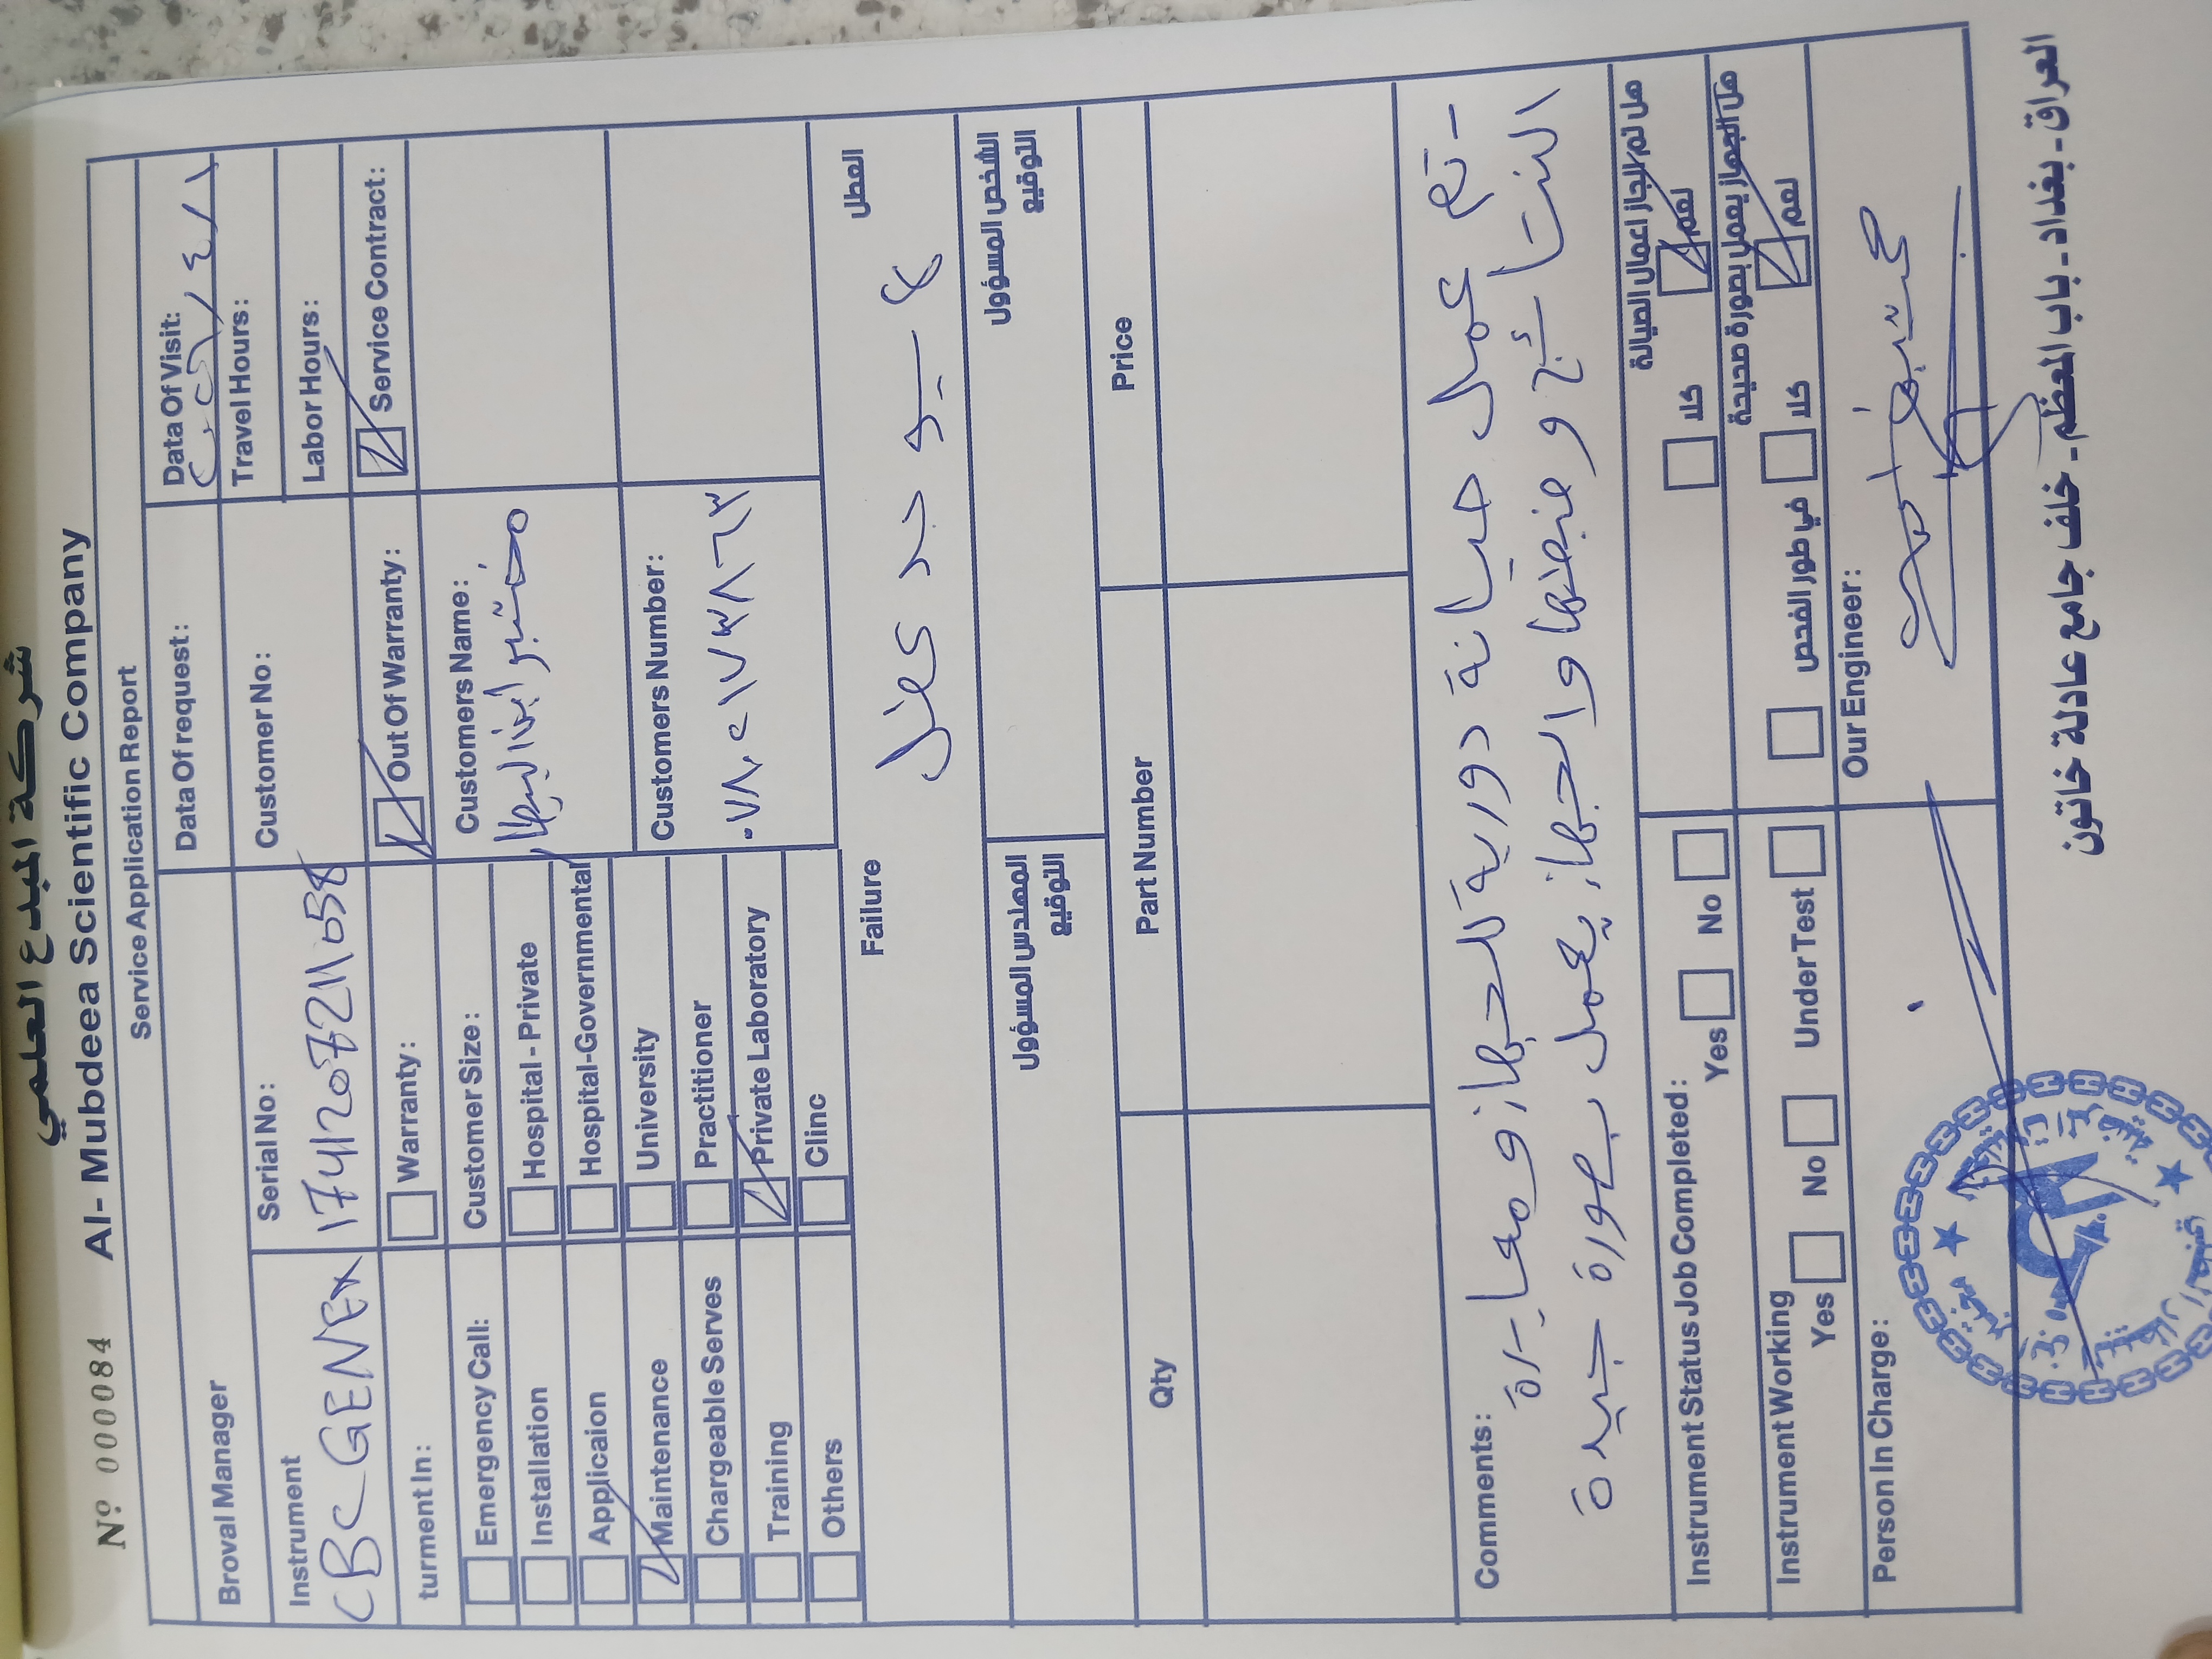 شركة المبدع العلمي
Nº 000084 Al- Mubdeea Scientific Company
Service Application Report
Broval Manager
Data Of request:
Data Of Visit:
Instrument
CBC GENEX
Serial No:
Customer No:
Travel Hours:
Labor Hours:
turment In:
Warranty:
Out Of Warranty:
Service Contract:
Emergency Call:
Installation
Applicaion
Maintenance
Chargeable Serves
Training
Others
Customer Size:
Hospital - Private
Hospital-Governmental
University
Practitioner
Private Laboratory
Clinc
Customers Name:
مختبر
Customers Number:
Failure
العطل
لا يوجد عطل
المهندس المسؤول
التوقيع
الشخص المسؤول
التوقيع
Qty
Part Number
Price
Comments:
- تم عمل صيانة دورية للجهاز ومعايرة
النتائج وضبطها والجهاز يعمل بصورة جيدة
Instrument Status Job Completed:
Yes
No
هل تم انجاز اعمال الصيانة
كلا
نعم
Instrument Working
Yes
No
Under Test
هل الجهاز يعمل بصورة صحيحة
في طور الفحص
كلا
نعم
Person In Charge:
Our Engineer: